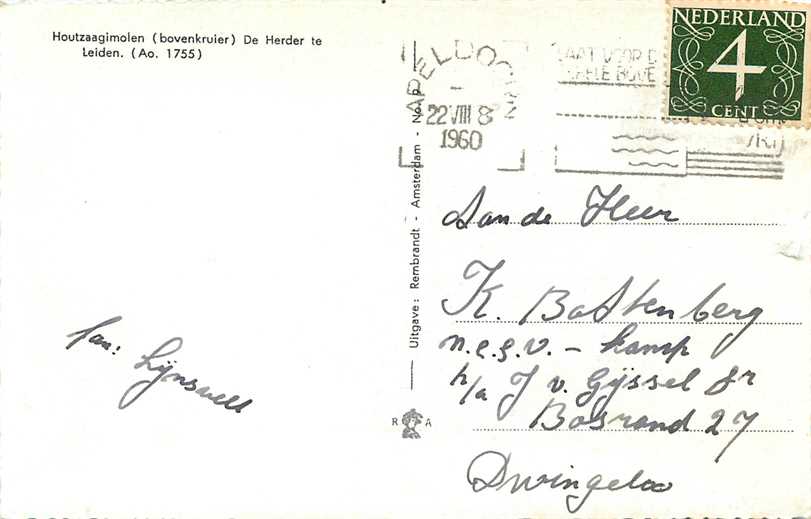 Houtzaagimolen (bovenkruier) De Herder te
Leiden. (Ao. 1755)
Uitgave: Rembrandt - Amsterdam - No. p
R A
APELDOORN
22 VIII 8
1960
NEDERLAND
4
CENT
Aan de Heer
K. Bostenberg
n.c.s.v. - kamp
h/a J v. Gijssel Jr
Bosrand 27
Dwingeloo
fam: